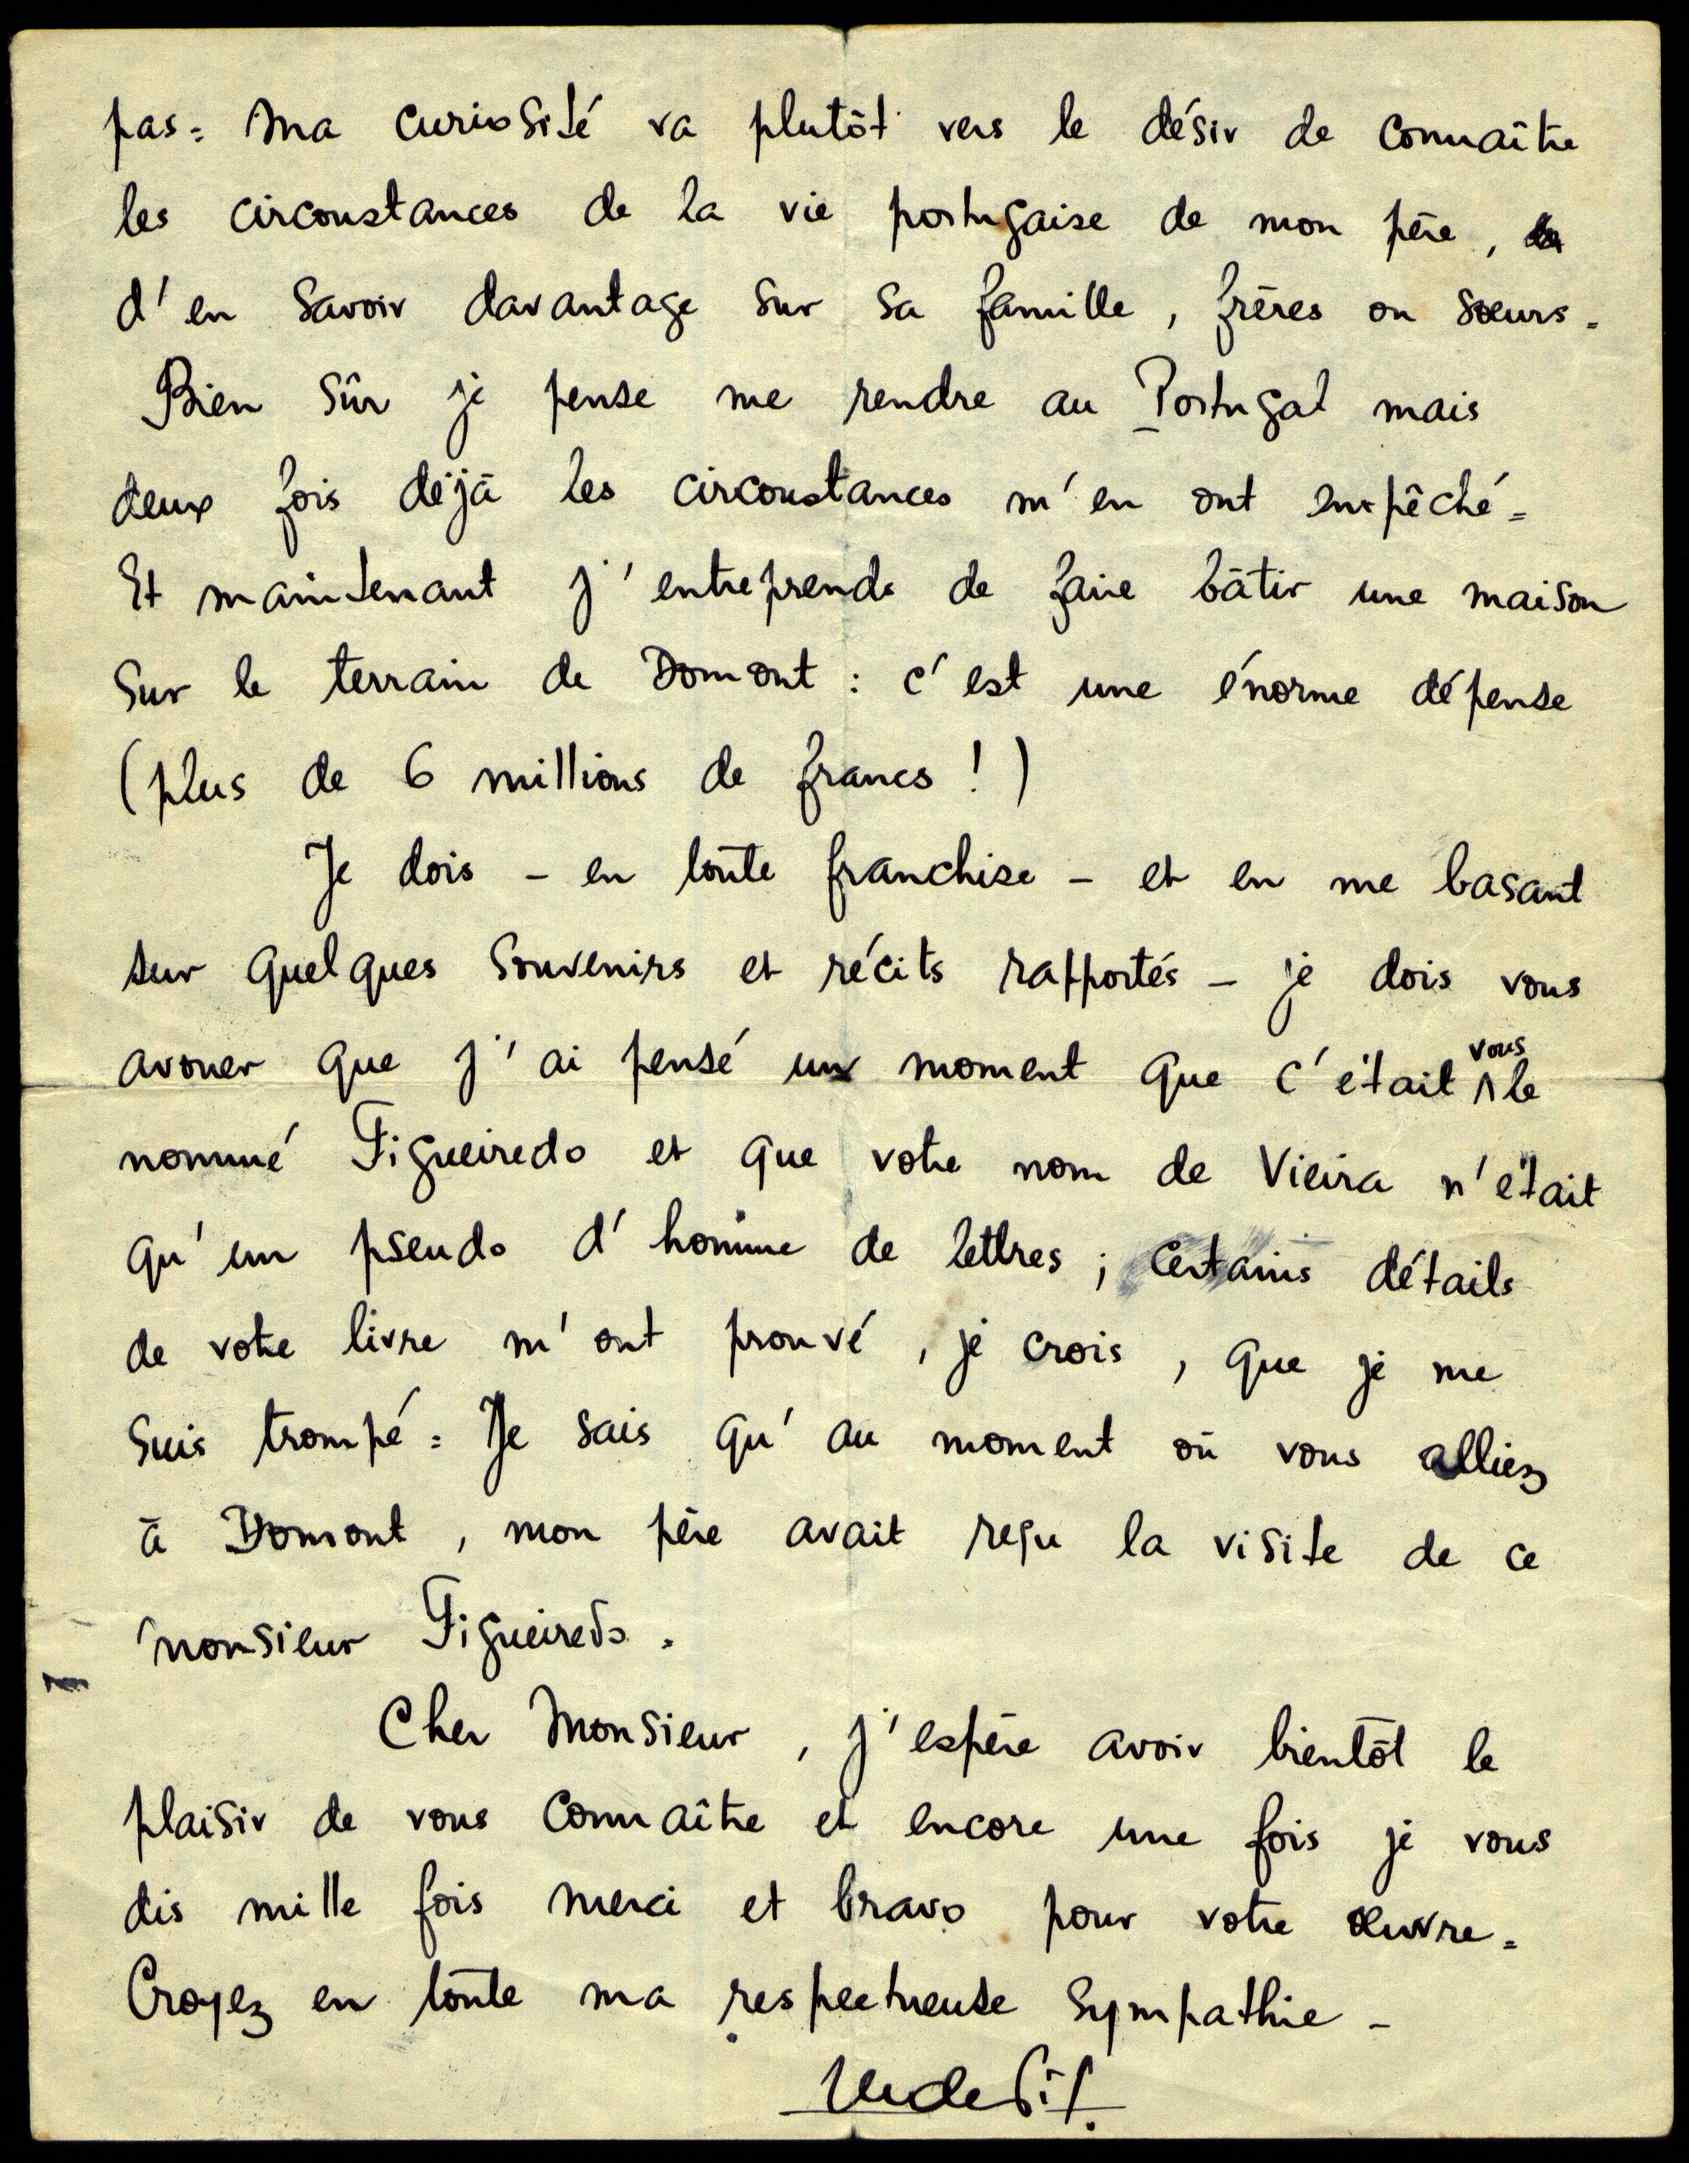 pas. Ma curiosité va plutôt vers le désir de connaître
les circonstances de la vie portugaise de mon père,
d'en savoir davantage sur sa famille, frères ou sœurs.
Bien sûr je pense me rendre au Portugal mais
deux fois déjà les circonstances m'en ont empêché.
Et maintenant j'entreprends de faire bâtir une maison
sur le terrain de Domont : c'est une énorme dépense
(plus de 6 millions de francs !)
Je dois - en toute franchise - et en me basant
sur quelques souvenirs et récits rapportés - je dois vous
avouer que j'ai pensé un moment que c'était vous le
nommé Figueiredo et que votre nom de Vieira n'était
qu'un pseudo d'homme de lettres ; certains détails
de votre livre m'ont prouvé, je crois, que je me
suis trompé. Je sais qu'au moment où vous alliez
à Domont, mon père avait reçu la visite de ce
monsieur Figueiredo.
Cher Monsieur, j'espère avoir bientôt le
plaisir de vous connaître et encore une fois je vous
dis mille fois merci et bravo pour votre œuvre.
Croyez en toute ma respectueuse sympathie -